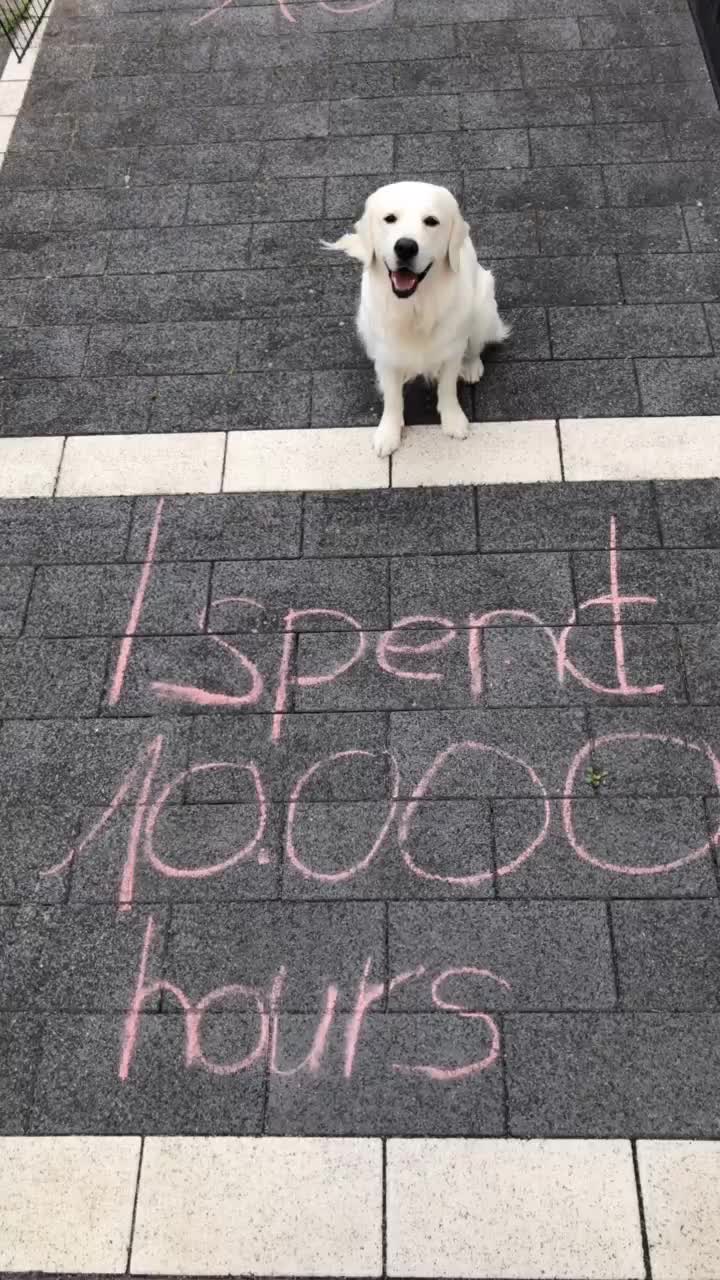 I spend
10.000
hours